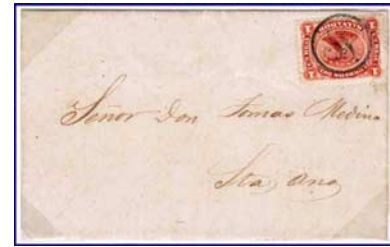 Señor Don Tomas Medina
Sta, Ana